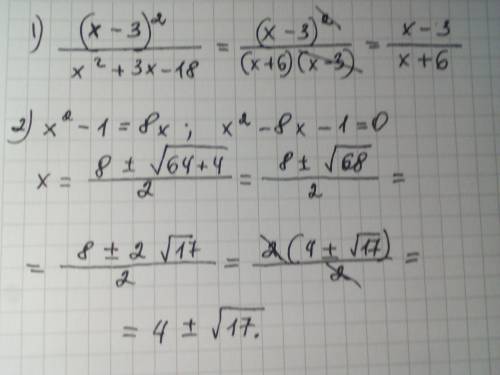 1) (x - 3)² / (x² + 3x - 18) = (x - 3)² / ((x + 6)(x - 3)) = (x - 3) / (x + 6)
2) x² - 1 = 8x ; x² - 8x - 1 = 0
x = (8 ± √(64 + 4)) / 2 = (8 ± √68) / 2 =
= (8 ± 2√17) / 2 = 2(4 ± √17) / 2 =
= 4 ± √17.